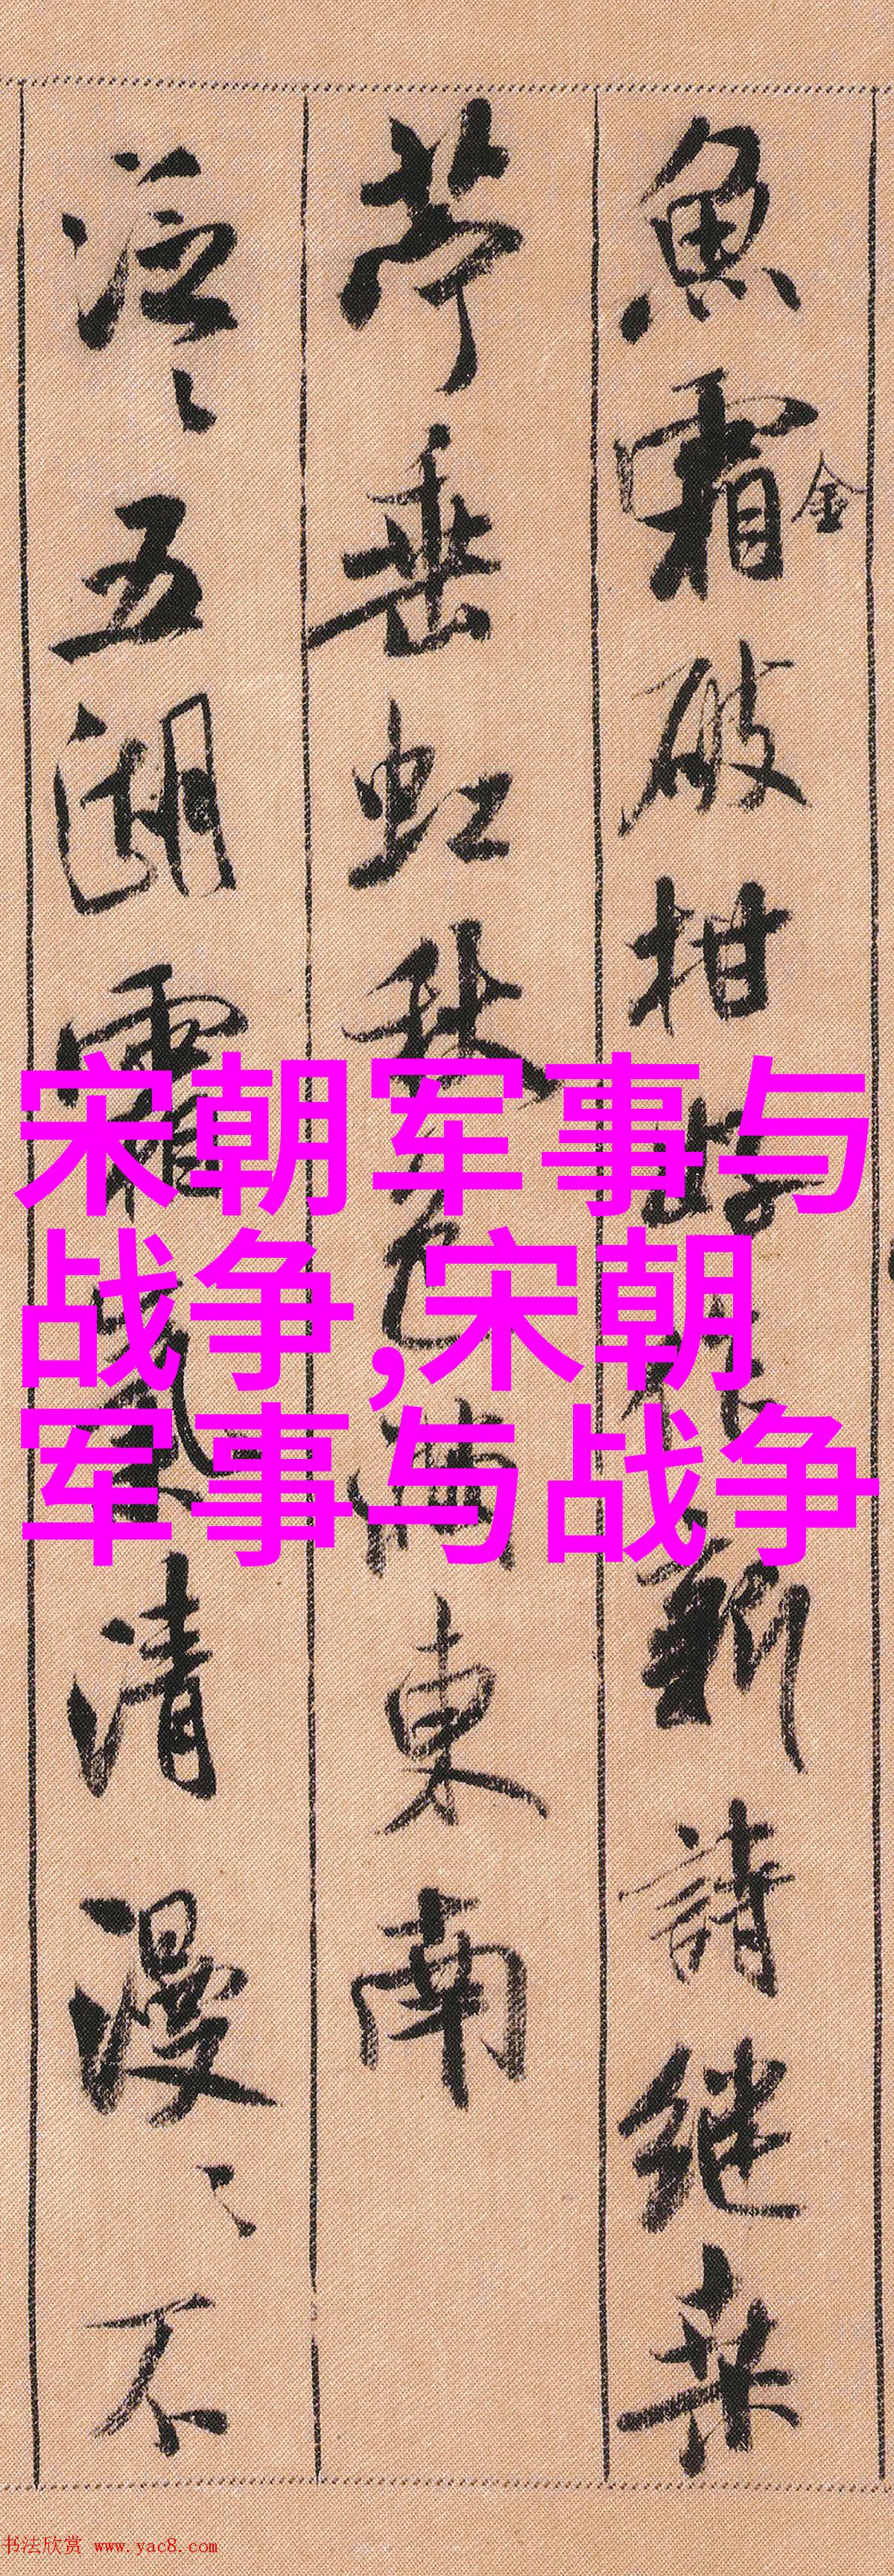 魚霜破柑好作新詩継桒
金
苧垂虹秋色満東南
泛〻五湖霜氣清漫〻不
宋朝军事与
战争,宋朝
军事与战争
书法欣赏 www.yac8.com